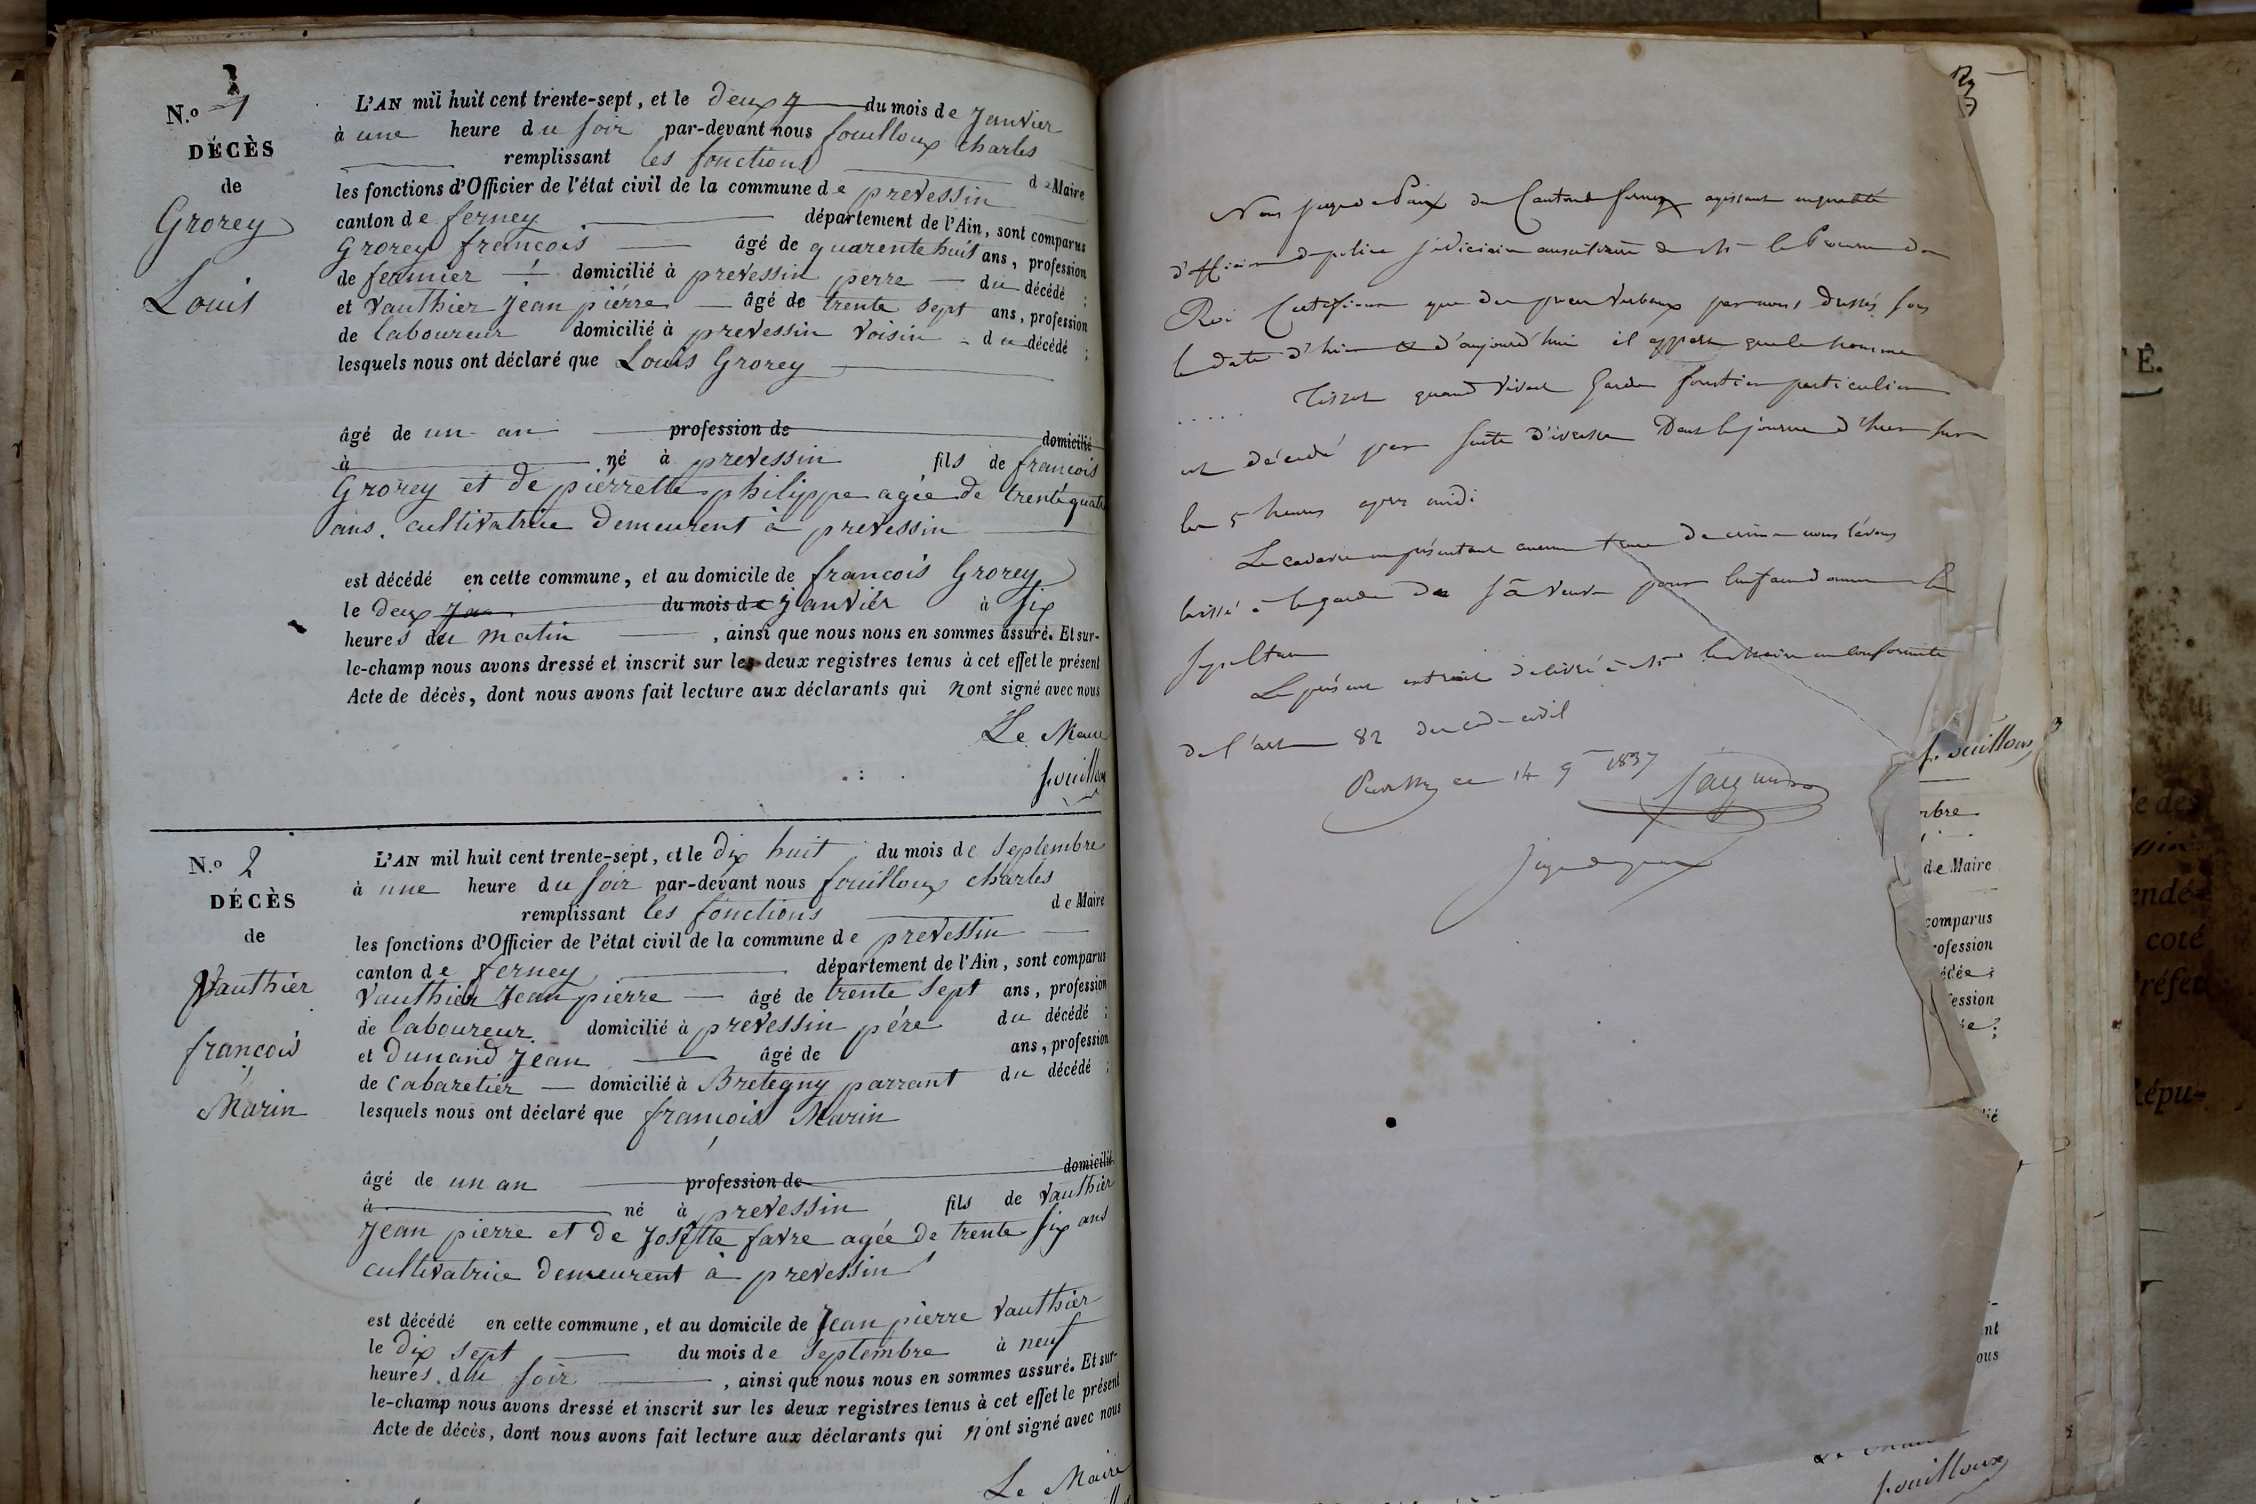 N.o 1
DÉCÈS
de
Grorey
Louis
L'AN mil huit cent trente-sept, et le deux du mois de janvier
à une heure du soir par-devant nous fouilloux charles
remplissant les fonctions de Maire
les fonctions d'Officier de l'état civil de la commune de prevessin
canton de ferney département de l'Ain, sont comparus
Grorey francois âgé de quarente huit ans, profession
de fermier domicilié à prevessin perre du décédé ;
et Vauthier jean pièrre âgé de trente sept ans, profession
de laboureur domicilié à prevessin voisin du décédé ;
lesquels nous ont déclaré que Louis Grorey
âgé de un an profession de domicilié
à né à prevessin fils de francois
Grorey et de pièrrette philippe agée de trente quatre
ans. cultivatrice demeurent à prevessin
est décédé en cette commune, et au domicile de francois Grorey
le deux du mois de janvièr à six
heures du matin , ainsi que nous nous en sommes assuré. Et sur-
le-champ nous avons dressé et inscrit sur les deux registres tenus à cet effet le présent
Acte de décès, dont nous avons fait lecture aux déclarants qui nont signé avec nous
Le Maire
fouilloux
N.o 2
DÉCÈS
de
Vauthier
francois
Marin
L'AN mil huit cent trente-sept, et le dix huit du mois de septembre
à une heure du soir par-devant nous fouilloux charles
remplissant les fonctions de Maire
les fonctions d'Officier de l'état civil de la commune de prevessin
canton de ferney département de l'Ain, sont comparus
Vauthier Jean pierre âgé de trente sept ans, profession
de laboureur domicilié à prevessin pére du décédé ;
et Dunand Jean âgé de ans, profession
de cabaretier domicilié à Bretegny parrant du décédé ;
lesquels nous ont déclaré que francois Marin
âgé de un an profession de domicilié
à né à prevessin fils de vauthier
Jean pierre et de Josette favre agée de trente six ans
cultivatrice demeurent à prevessin
est décédé en cette commune, et au domicile de Jean pierre Vauthier
le dix sept du mois de septembre à neuf
heures du soir , ainsi que nous nous en sommes assuré. Et sur-
le-champ nous avons dressé et inscrit sur les deux registres tenus à cet effet le présent
Acte de décès, dont nous avons fait lecture aux déclarants qui n'ont signé avec nous
Le Maire
Nous juge de Paix du Canton de ferney agissant en qualité
d'officier de police judiciaire auxiliaire de Mr le Procureur du
Roi Certifions que des procès verbaux par nous dressés sous
la date d'hier & d'aujourd'hui il appert que le nommé
..... Tissot quand vivait Garde forestier particulier
est décédé par suite d'ivresse Dans la journée d'hier sur
les 5 heures après midi
Le cadavre ne présentant aucune trace de crime nous l'avons
laissé à la garde de sa veuve pour lui faire donner la
sépulture
Le présent extrait délivré à Mr le Maire en conformité
de l'art 82 du code civil
ce 14 9 1837
juge de paix
fouilloux
mbre
de Maire
comparus
rofession
édée ;
fession
nt
ous
fouilloux
Ê.
e des
ssin
endé-
coté
Préfet
Répu-